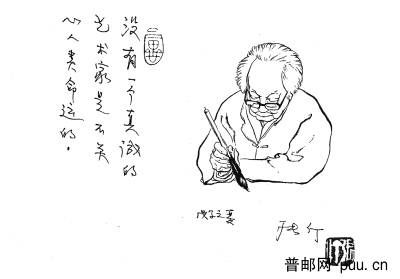 没有一个真诚的
艺术家是不关
心人类命运的。
戊子之夏
普邮网-puu.cn